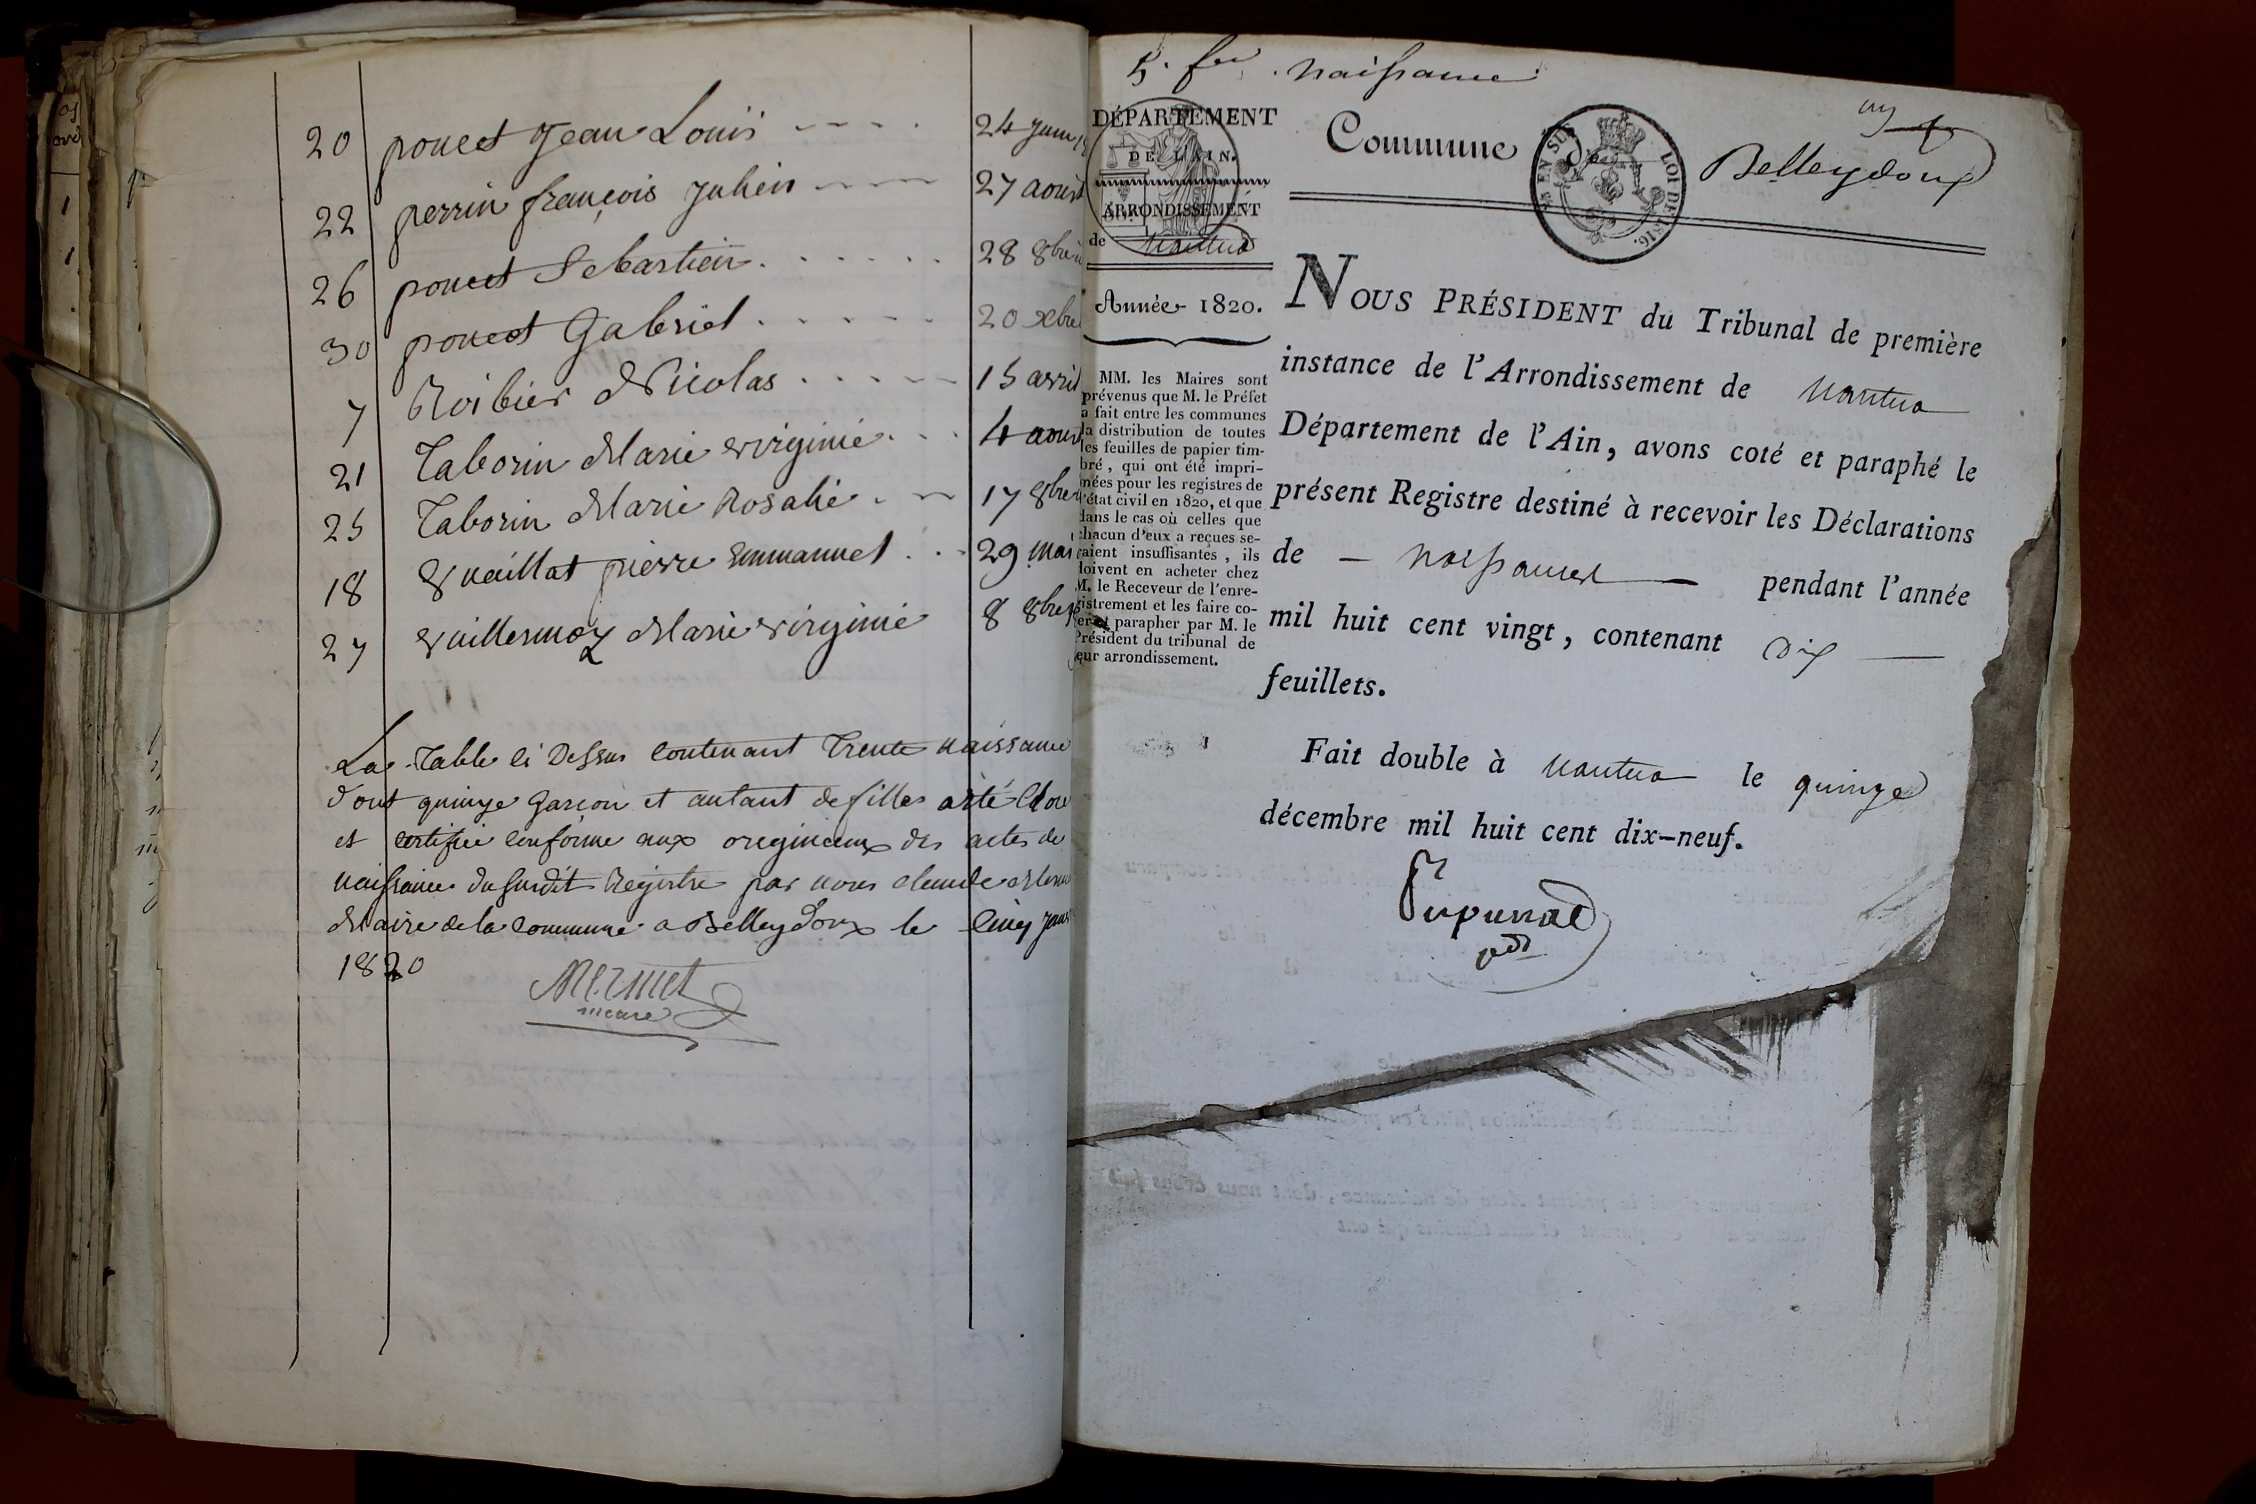 20 poncet Jean Louis 24 juin
22 perrin françois Julien 27 aout
26 poncet Sebastien 28 8bre
30 poncet Gabriel 20 xbre
7 Roibier Nicolas 15 avril
21 Taborin Marie virginie 4 aout
25 Taborin Marie Rosalie 17 8bre
18 Vuaillat pierre Emmanuel 29 mai
27 vuillermoz Marie virginie 8 8bre
La Table ci Dessus contenant Trente naissance
dont quinze Garçon et autant de filles a été Close
et certifiée conforme aux origineaux des actes de
naissance du susdit Registre par nous claude Mermet
Maire de la commune a Belleydoux le Cinq janv
1820
Mermet
maire
5. fer. naissance
DÉPARTEMENT
DE L'AIN.
ARRONDISSEMENT
de Nantua
Année 1820.
MM. les Maires sont
prévenus que M. le Préfet
a fait entre les communes
la distribution de toutes
les feuilles de papier tim-
bré, qui ont été impri-
mées pour les registres de
l'état civil en 1820, et que
dans le cas où celles que
chacun d'eux a reçues se-
raient insuffisantes, ils
doivent en acheter chez
M. le Receveur de l'enre-
gistrement et les faire co-
ter et parapher par M. le
Président du tribunal de
leur arrondissement.
Commune de Belleydoux
EN SUS LOI DE 1816.
NOUS PRÉSIDENT du Tribunal de première
instance de l'Arrondissement de Nantua
Département de l'Ain, avons coté et paraphé le
présent Registre destiné à recevoir les Déclarations
de — Naissances — pendant l'année
mil huit cent vingt, contenant Dix —
feuillets.
Fait double à Nantua le quinze
décembre mil huit cent dix-neuf.